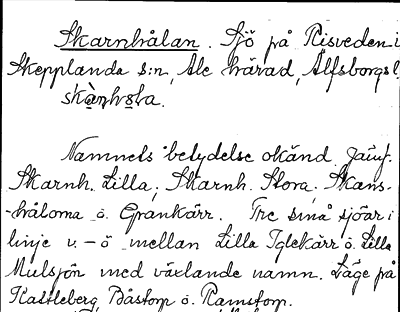 Skarnhålan. Sjö på Risveden i
Skepplanda s:n, Ale härad, Älfsborgs l
Namnets betydelse okänd. Jämf.
Skarnh. Lilla, Skarnh. Stora, Skans-
-hålorna o. Grankärr. Tre små sjöar i
linje v.-ö mellan Lilla Iglekärr o. Lilla
Mulsjön med växlande namn. Läge på
Kastleberg, Båstorp o. Ramstorp.